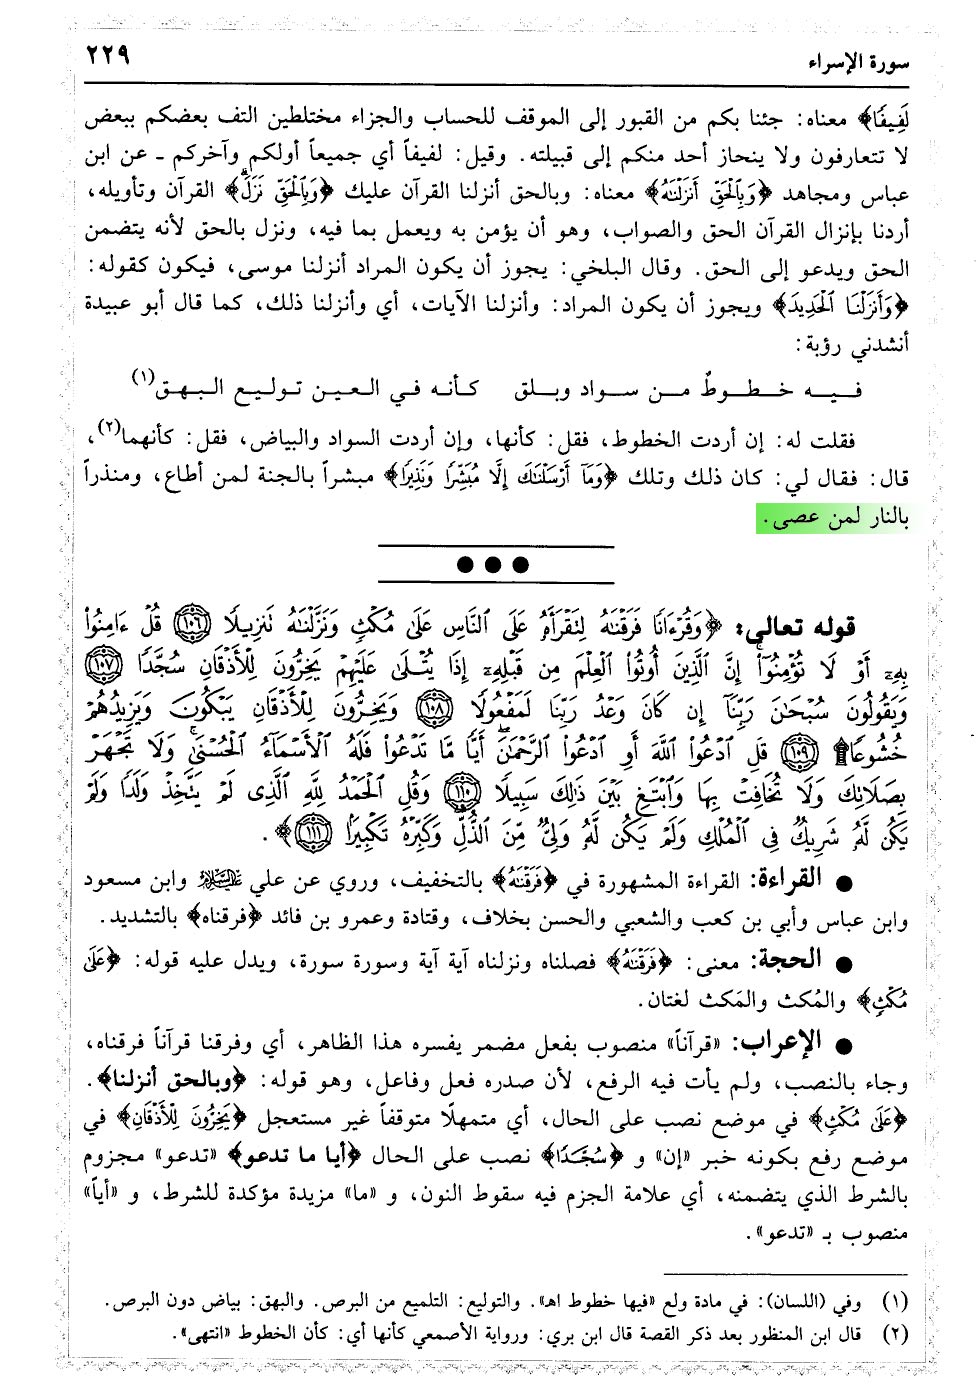 سورة الإسراء ٢٢٩
لَفِيفًا﴾ معناه: جئنا بكم من القبور إلى الموقف للحساب والجزاء مختلطين التف بعضكم ببعض
لا تتعارفون ولا ينحاز أحد منكم إلى قبيلته. وقيل: لفيفاً أي جميعاً أولكم وآخركم ـ عن ابن
عباس ومجاهد ﴿وَبِالْحَقِّ أَنزَلْنَٰهُ﴾ معناه: وبالحق أنزلنا القرآن عليك ﴿وَبِالْحَقِّ نَزَلَ﴾ القرآن وتأويله،
أردنا بإنزال القرآن الحق والصواب، وهو أن يؤمن به ويعمل بما فيه، ونزل بالحق لأنه يتضمن
الحق ويدعو إلى الحق. وقال البلخي: يجوز أن يكون المراد أنزلنا موسى، فيكون كقوله:
﴿وَأَنزَلْنَا الْحَدِيدَ﴾ ويجوز أن يكون المراد: وأنزلنا الآيات، أي وأنزلنا ذلك، كما قال أبو عبيدة
أنشدني رؤبة:
فيـه خـطـوطٌ مـن سـواد وبـلق كـأنـه فـي الـعـين تـولـيع الـبـهـق(١)
فقلت له: إن أردت الخطوط، فقل: كأنها، وإن أردت السواد والبياض، فقل: كأنهما(٢)،
قال: فقال لي: كان ذلك وتلك ﴿وَمَآ أَرْسَلْنَٰكَ إِلَّا مُبَشِّرًا وَنَذِيرًا﴾ مبشراً بالجنة لمن أطاع، ومنذراً
بالنار لمن عصى.
قوله تعالى: ﴿وَقُرْءَانًا فَرَقْنَٰهُ لِتَقْرَأَهُۥ عَلَى ٱلنَّاسِ عَلَىٰ مُكْثٍ وَنَزَّلْنَٰهُ تَنزِيلًا ١٠٦ قُلْ ءَامِنُوا۟
بِهِۦٓ أَوْ لَا تُؤْمِنُوٓا۟ ۚ إِنَّ ٱلَّذِينَ أُوتُوا۟ ٱلْعِلْمَ مِن قَبْلِهِۦٓ إِذَا يُتْلَىٰ عَلَيْهِمْ يَخِرُّونَ لِلْأَذْقَانِ سُجَّدًا ١٠٧
وَيَقُولُونَ سُبْحَٰنَ رَبِّنَآ إِن كَانَ وَعْدُ رَبِّنَا لَمَفْعُولًا ١٠٨ وَيَخِرُّونَ لِلْأَذْقَانِ يَبْكُونَ وَيَزِيدُهُمْ
خُشُوعًا ۩ ١٠٩ قُلِ ٱدْعُوا۟ ٱللَّهَ أَوِ ٱدْعُوا۟ ٱلرَّحْمَٰنَ ۖ أَيًّا مَّا تَدْعُوا۟ فَلَهُ ٱلْأَسْمَآءُ ٱلْحُسْنَىٰ ۚ وَلَا تَجْهَرْ
بِصَلَاتِكَ وَلَا تُخَافِتْ بِهَا وَٱبْتَغِ بَيْنَ ذَٰلِكَ سَبِيلًا ١١٠ وَقُلِ ٱلْحَمْدُ لِلَّهِ ٱلَّذِى لَمْ يَتَّخِذْ وَلَدًا وَلَمْ
يَكُن لَّهُۥ شَرِيكٌ فِى ٱلْمُلْكِ وَلَمْ يَكُن لَّهُۥ وَلِىٌّ مِّنَ ٱلذُّلِّ ۖ وَكَبِّرْهُ تَكْبِيرًا ١١١﴾.
● القراءة: القراءة المشهورة في ﴿فَرَقْنَٰهُ﴾ بالتخفيف، وروي عن علي عليه السلام وابن مسعود
وابن عباس وأبي بن كعب والشعبي والحسن بخلاف، وقتادة وعمرو بن فائد ﴿فرقناه﴾ بالتشديد.
● الحجة: معنى: ﴿فَرَقْنَٰهُ﴾ فصلناه ونزلناه آية آية وسورة سورة، ويدل عليه قوله: ﴿عَلَىٰ
مُكْثٍ﴾ والمُكث والمَكث لغتان.
● الإعراب: «قرآناً» منصوب بفعل مضمر يفسره هذا الظاهر، أي وفرقنا قرآناً فرقناه،
وجاء بالنصب، ولم يأت فيه الرفع، لأن صدره فعل وفاعل، وهو قوله: ﴿وبالحق أنزلنا﴾.
﴿عَلَىٰ مُكْثٍ﴾ في موضع نصب على الحال، أي متمهلًا متوقفاً غير مستعجل ﴿يَخِرُّونَ لِلْأَذْقَانِ﴾ في
موضع رفع بكونه خبر «إن» و ﴿سُجَّدًا﴾ نصب على الحال ﴿أيا ما تدعو﴾ «تدعو» مجزوم
بالشرط الذي يتضمنه، أي علامة الجزم فيه سقوط النون، و «ما» مزيدة مؤكدة للشرط، و «أياً»
منصوب بـ «تدعو».
(١) وفي (اللسان): في مادة ولع «فيها خطوط اهـ». والتوليع: التلميع من البرص. والبهق: بياض دون البرص.
(٢) قال ابن المنظور بعد ذكر القصة قال ابن بري: ورواية الأصمعي كأنها أي: كأن الخطوط «انتهى».